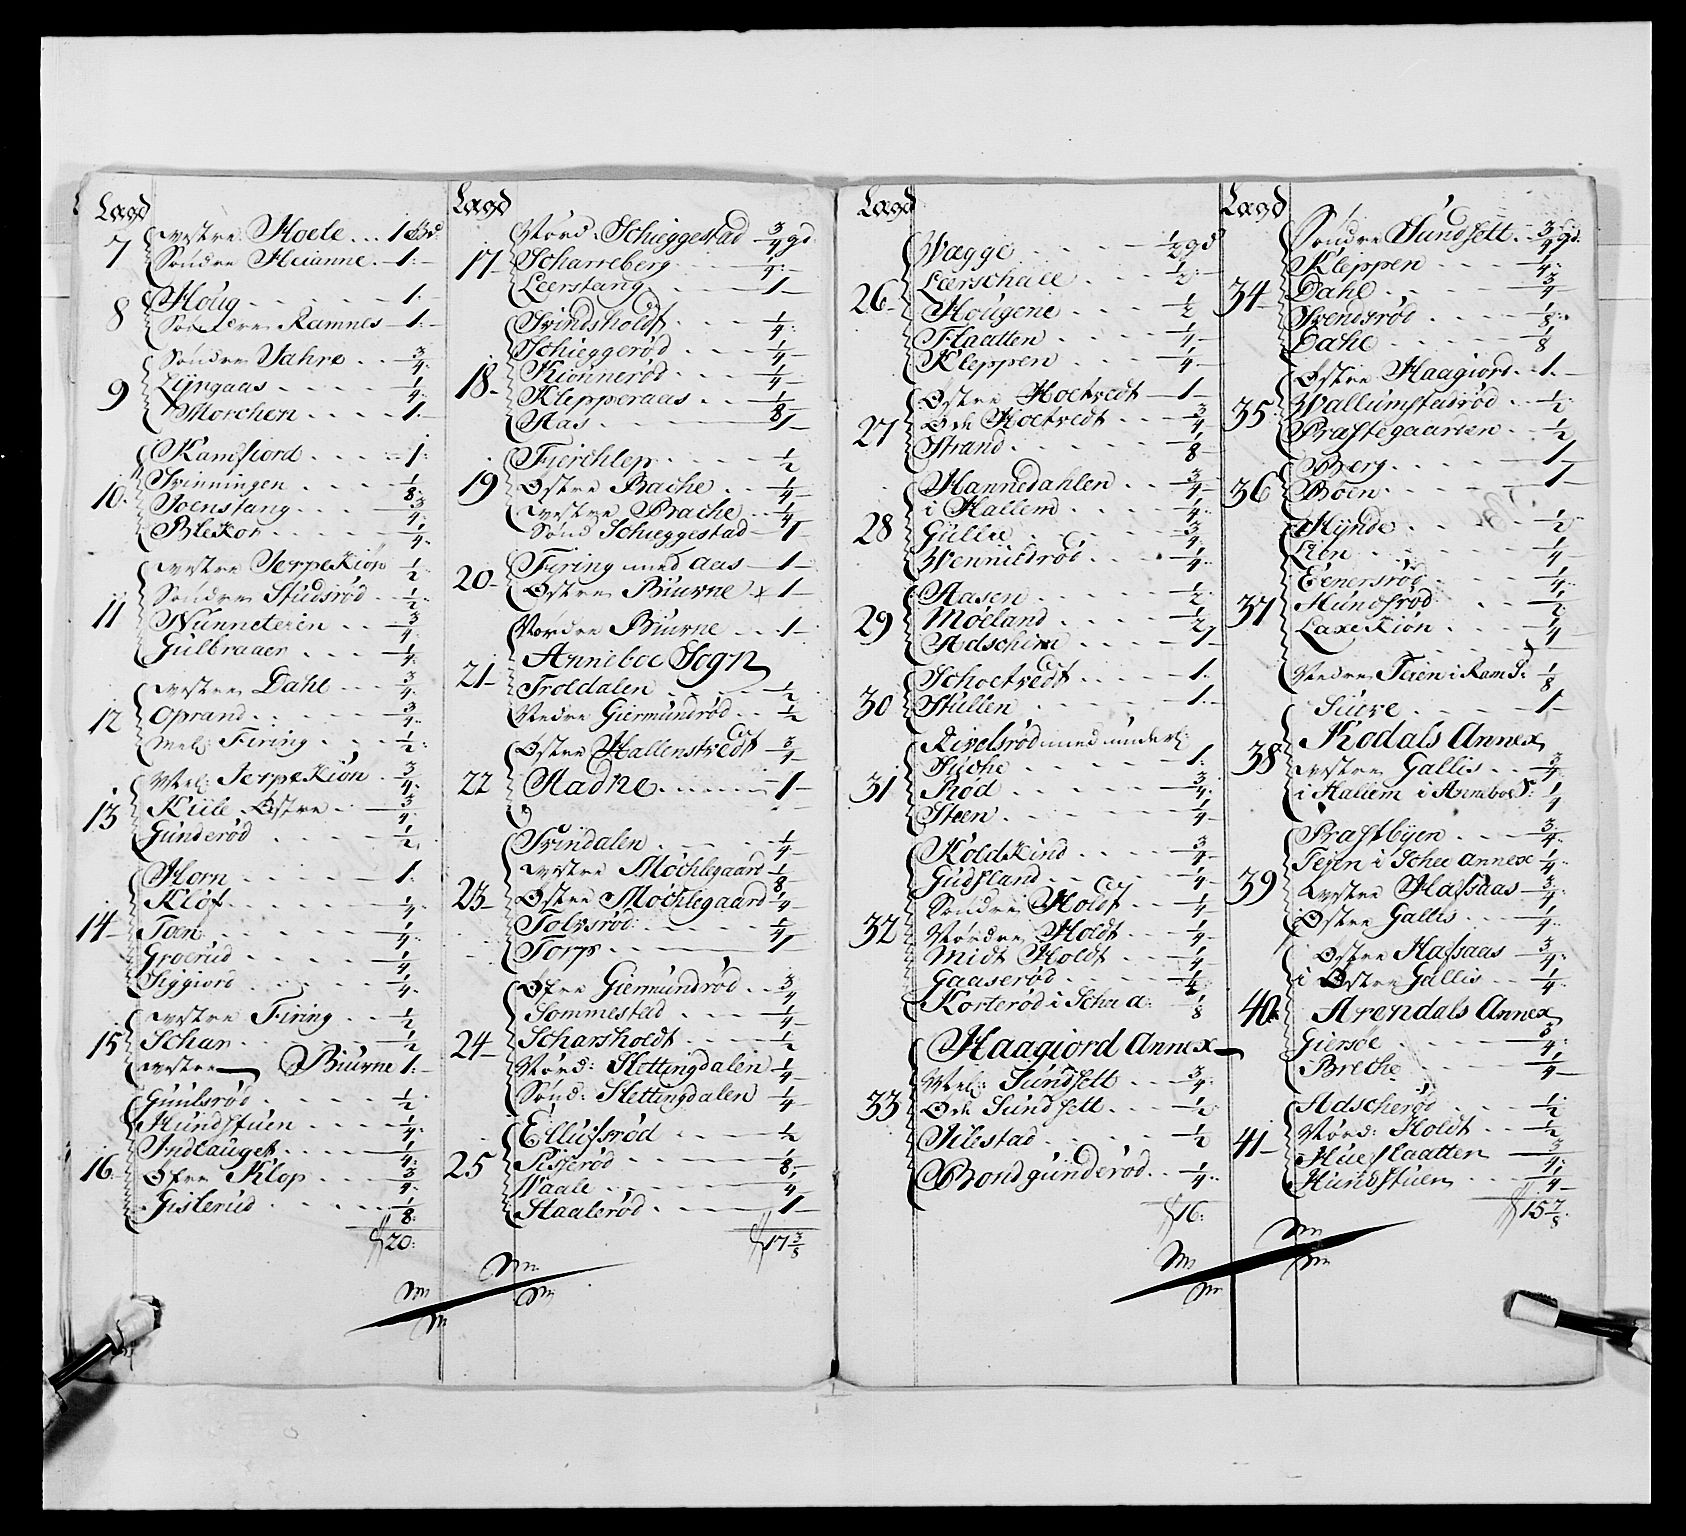 Lagd
7 vestre Hoele ... 1 Gd:
Søndre Heianne . 1: -
8 Houg . . . . . 1. -
Søndre Ramnes - 1: -
9 Søndre Jahre . . 3/4.
Lyngaas . . . . 1/4.
Morchen . . . . 1. -
10. Ramsiord . . . . 1:
Svinningen . . . 1/8.
Joenstang . . . 3/4.
Blekor . . . . 1/4.
11 vestre JerpeKiøn 1/2.
Søndre Studsrød . . 1/2.
Nunneterin . . 3/4.
Gulbraaen . . . 1/4.
12 vestre Dahl . . . 3/4.
Oprand . . . . 3/4.
mel: Firing . . . 1/2:
13 Mel: JerpeKiøn . 3/4.
Kiile Østre . . 3/4.
Gunderød . . . . 1/2.
14 Horn . . . . . 1.
Kløf . . . . . 1/4.
Toen . . . . . 1/4.
Groerud . . . . 1/4.
Siggiord . . . . 1/4.
15 vestre Firing . . 1/2
Schan . . . . . 1/2
vestre Biurne 1: -
16 Guulsrød . . . . 1/2.
Hundstuen . . . 1/4.
Indlauget . . . . 1/4.
Øfre Klop . . . 3/4.
Gisterud . . . . 1/8:
20:
Lagd
17 Nord. Schieggestad 3/4 gd:
Scharreberg . . . 1/4. -
Leerstang . . . 1 -
18 Svindsholdt . . . 1/4.
Schieggerød . . . 1/4
Kiønnerød . . . 1/4
Klepperaas . . . 1/8
Aas . . . . . 1 -
19 Fierchlep . . . . 1/2
Østre Bache . . 1/4
vestre Bache . . 1/4
Sønd Schieggestad - 1 -
20 Firing med aas - 1 -
Østre Biurne x 1 -
21 Nordre Biurne . . 1 -
Anneboe Sogn
Troldalen . . . 1/2.
Nedre Giermundrød . . 1/2
22 Østre Hallenstvedt 3/4
Aadne . . . . . 1 -
23 Svindalen . . . . 1/4
vestre Møchlegaard 1/8
Østre Møchlegaard 1/4
Tolvsrød . . . . 1/4
Torp . . . . . 1
24 Øfre Giermundrød . . 3/4
Sommestad . . . 1/4
Scharsholdt . . . 1/2
Nord: Hettingdalen 1/4
Sønd: Hettingdalen 1/4
25 Ellufsrød . . . 1/2
Sisserød . . . . 1/8.
Vaale . . . . . 1/4
Haalerød . . . . 1 -
17 3/8
Lagd
26 Vegge . . . . 1/2 gd
Leerschall . . . 1/2. -
Hougene . . . . 1/2
Flaatten . . . . 1/4
Kleppen . . . . 1/4
27 Østre Hoetvedt - 1 -
Øde Hoetvedt . . . 3/4
Strand . . . . . 1/8
28 Hannedahlen . . 3/4
i Hallem . . . . 1/4.
Gullie . . . . . 3/4.
Vennildrød . . . 1/4.
29 Aasen . . . . . 1/2.
Møeland . . . . 1/2.
Adschim . . . . 1
30 Schoetvedt . . . 1.
Stullen . . . . . 1.
31 Rivelsrød med underl:
Suohe . . . . . 1.
Rød . . . . . . 3/4.
Steen . . . . . 1/4
32 Kold Kind . . . . 3/4
Gudsland . . . . 1/4
Søndre Holdt . . 1/4
Nordre Holdt . . 1/4
Midt Holdt . . . 1/4
Gaaserød . . . . 1/4
Korterød i Schee a: 1/8
33 Haagiord Annex
Mel: Sundsett . . . 3/4:
Øde Sundsett . . . 1/2.
Jilestad . . . . . 1/2
Bondgunderød . . 1/4.
16:
Lagd
34 Søndre Sundsett . 3/4 gd.
Kleppen . . . . 1/4.
Dahl . . . . . 3/4
Svendsrød . . . 1/8.
Dahl . . . . . 1/8
35 Østre Haagiord . . 1. -
Vallumstadrød . . 1/2.
Præstegaarden . . 1/2
36 Berg . . . . . 1
Boen . . . . . 1
37 Hynde . . . . . 1/2.
Lien . . . . . 1/4
Eenersrød . . . 1/4.
Hundsrød . . . 1/2
LaxeKiøn . . . 1/4
38 Nedre Feien i Ram S: 1/8
Siure . . . . . 1 -
Kodals Annex
vestre Gallis . . 3/4
i Hallem i Anneboe S: 1/4
39 Præstbyen . . . 3/4.
Feyen i Schee annex 1/4
vestre Hafsaas 3/4
Østre Gallis . . . 1/4
40. Østre Hafsaas - 3/4.
i Østre Gallis . . 1/4.
Arendals Annex
Giersøe . . . . 3/4:
Breche . . . . 1/4
41 Adscherød . . . 1/2
Nord: Holdt . . 1/2
Hueslaatten . . 3/4.
Hundstuen . . . 1/4
15 7/8: